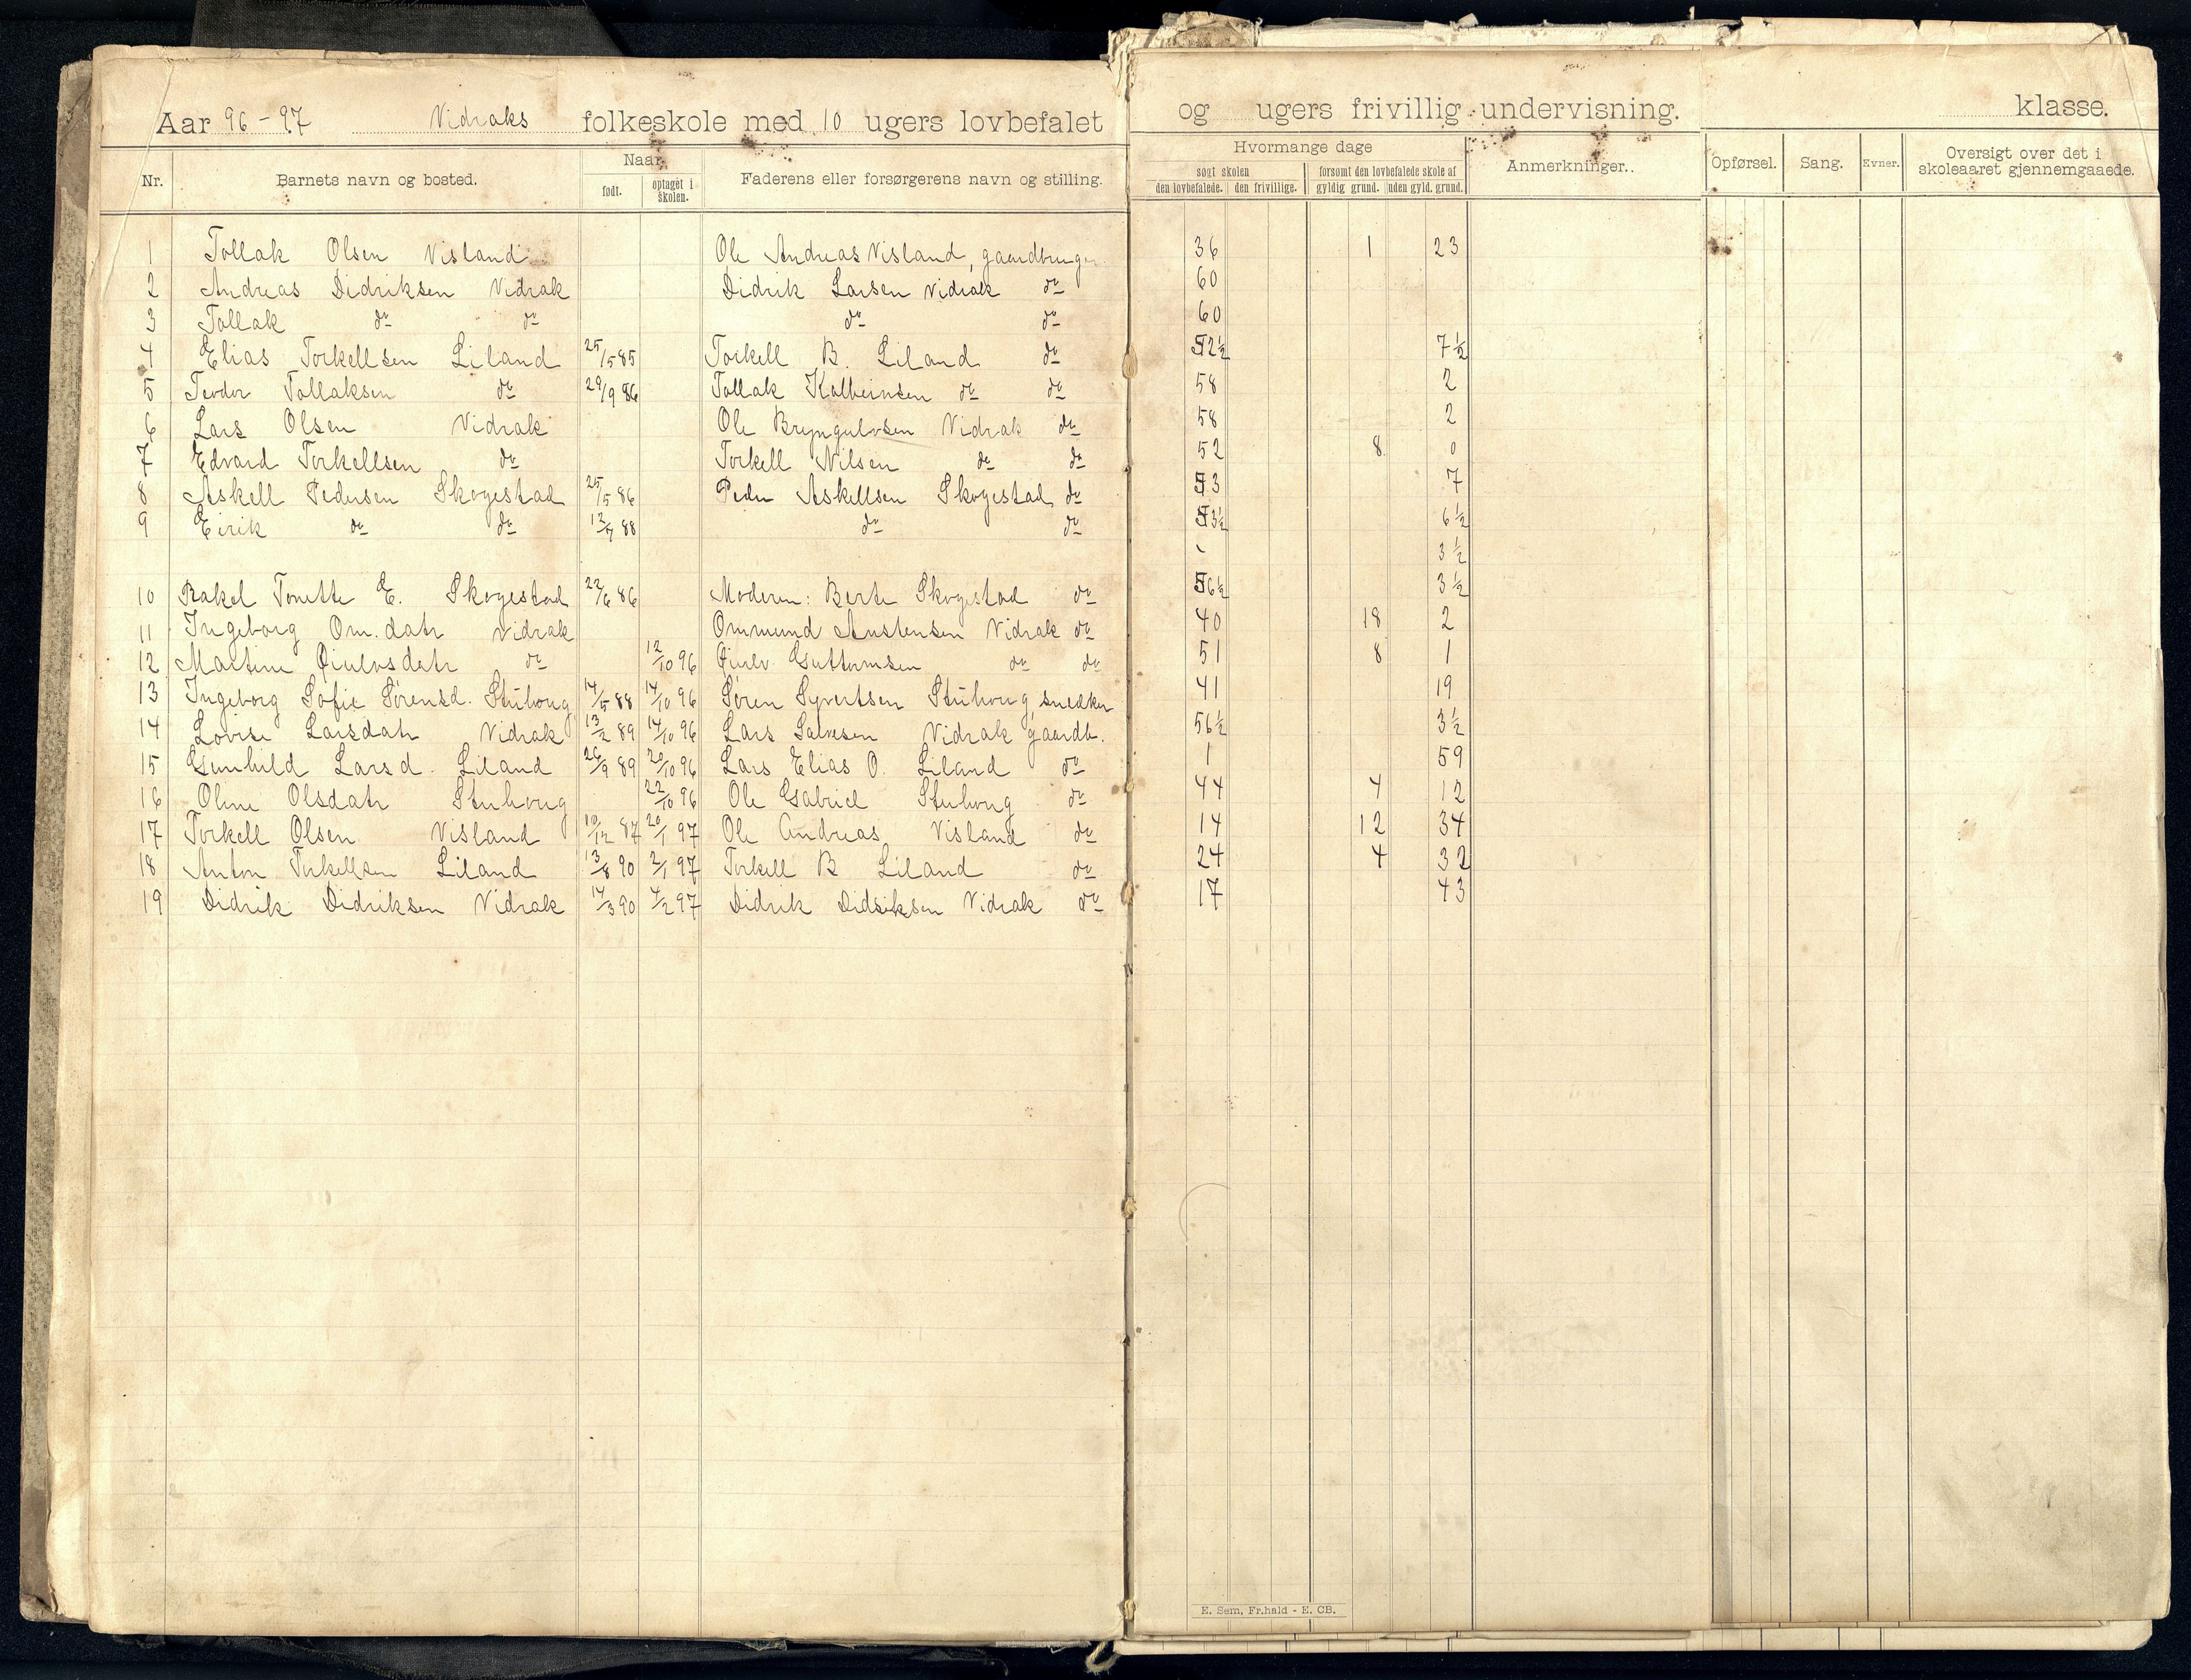 Aar 96-97 Vidraks folkeskole med 10 ugers lovbefalet og ugers frivillig undervisning. klasse.
Nr. Barnets navn og bosted. Naar født. optaget i skolen. Faderens eller forsørgerens navn og stilling. Hvormange dage søgt skolen den lovbefalede. den frivillige. forsømt den lovbefalede skole af gyldig grund. uden gyld. grund. Anmerkninger. Opførsel. Sang. Evner. Oversigt over det i skoleaaret gjennemgaaede.
1 Tollak Olsen Visland Ole Andreas Visland, gaardbruger 36 1 23
2 Andreas Didriksen Vidrak Didrik Larsen Vidrak do 60
3 Tollak do do do do 60
4 Elias Torkellsen Liland 25/5 85 Torkell B. Liland do 52½ 7½
5 Teodor Tollaksen do 29/9 86 Tollak Kolbeinsen do do 58 2
6 Lars Olsen Vidrak Ole Bryngulvsen Vidrak do 58 2
7 Edvard Torkellsen do Torkell Nilsen do do 52 8 0
8 Askell Pedersen Skogestad 25/5 86 Peder Askellsen Skogestad do 53 7
9 Eirik do do 12/7 88 do do 53½ 6½
3½
10 Rakel Tonette E. Skogestad 22/6 86 Moderen: Berte Skogestad do 56½ 3½
11 Ingeborg Om.datr Vidrak Ommund Austensen Vidrak do 40 18 2
12 Martine Øiulvsdatr do 12/10 96 Øiulv Guttormsen do do 51 8 1
13 Ingeborg Sofie Sørensd. Stuhoug 14/5 88 14/10 96 Søren Syvertsen Stuhoug, snedker 41 19
14 Lovise Larsdatr Vidrak 13/2 89 14/10 96 Lars Salvesen Vidrak gaardb. 56½ 3½
15 Gunhild Larsd. Liland 26/9 89 20/10 96 Lars Elias O. Liland do 1 59
16 Oline Olsdatr Stuhoug 22/10 96 Ole Gabriel Stuhoug do 44 4 12
17 Torkell Olsen Visland 10/12 87 20/1 97 Ole Andreas Visland do 14 12 34
18 Anton Torkellsen Liland 13/8 90 2/1 97 Torkell B Liland do 24 4 32
19 Didrik Didriksen Vidrak 14/3 90 4/2 97 Didrik Didriksen Vidrak do 17 43
E. Sem, Fr.hald - E. CB.